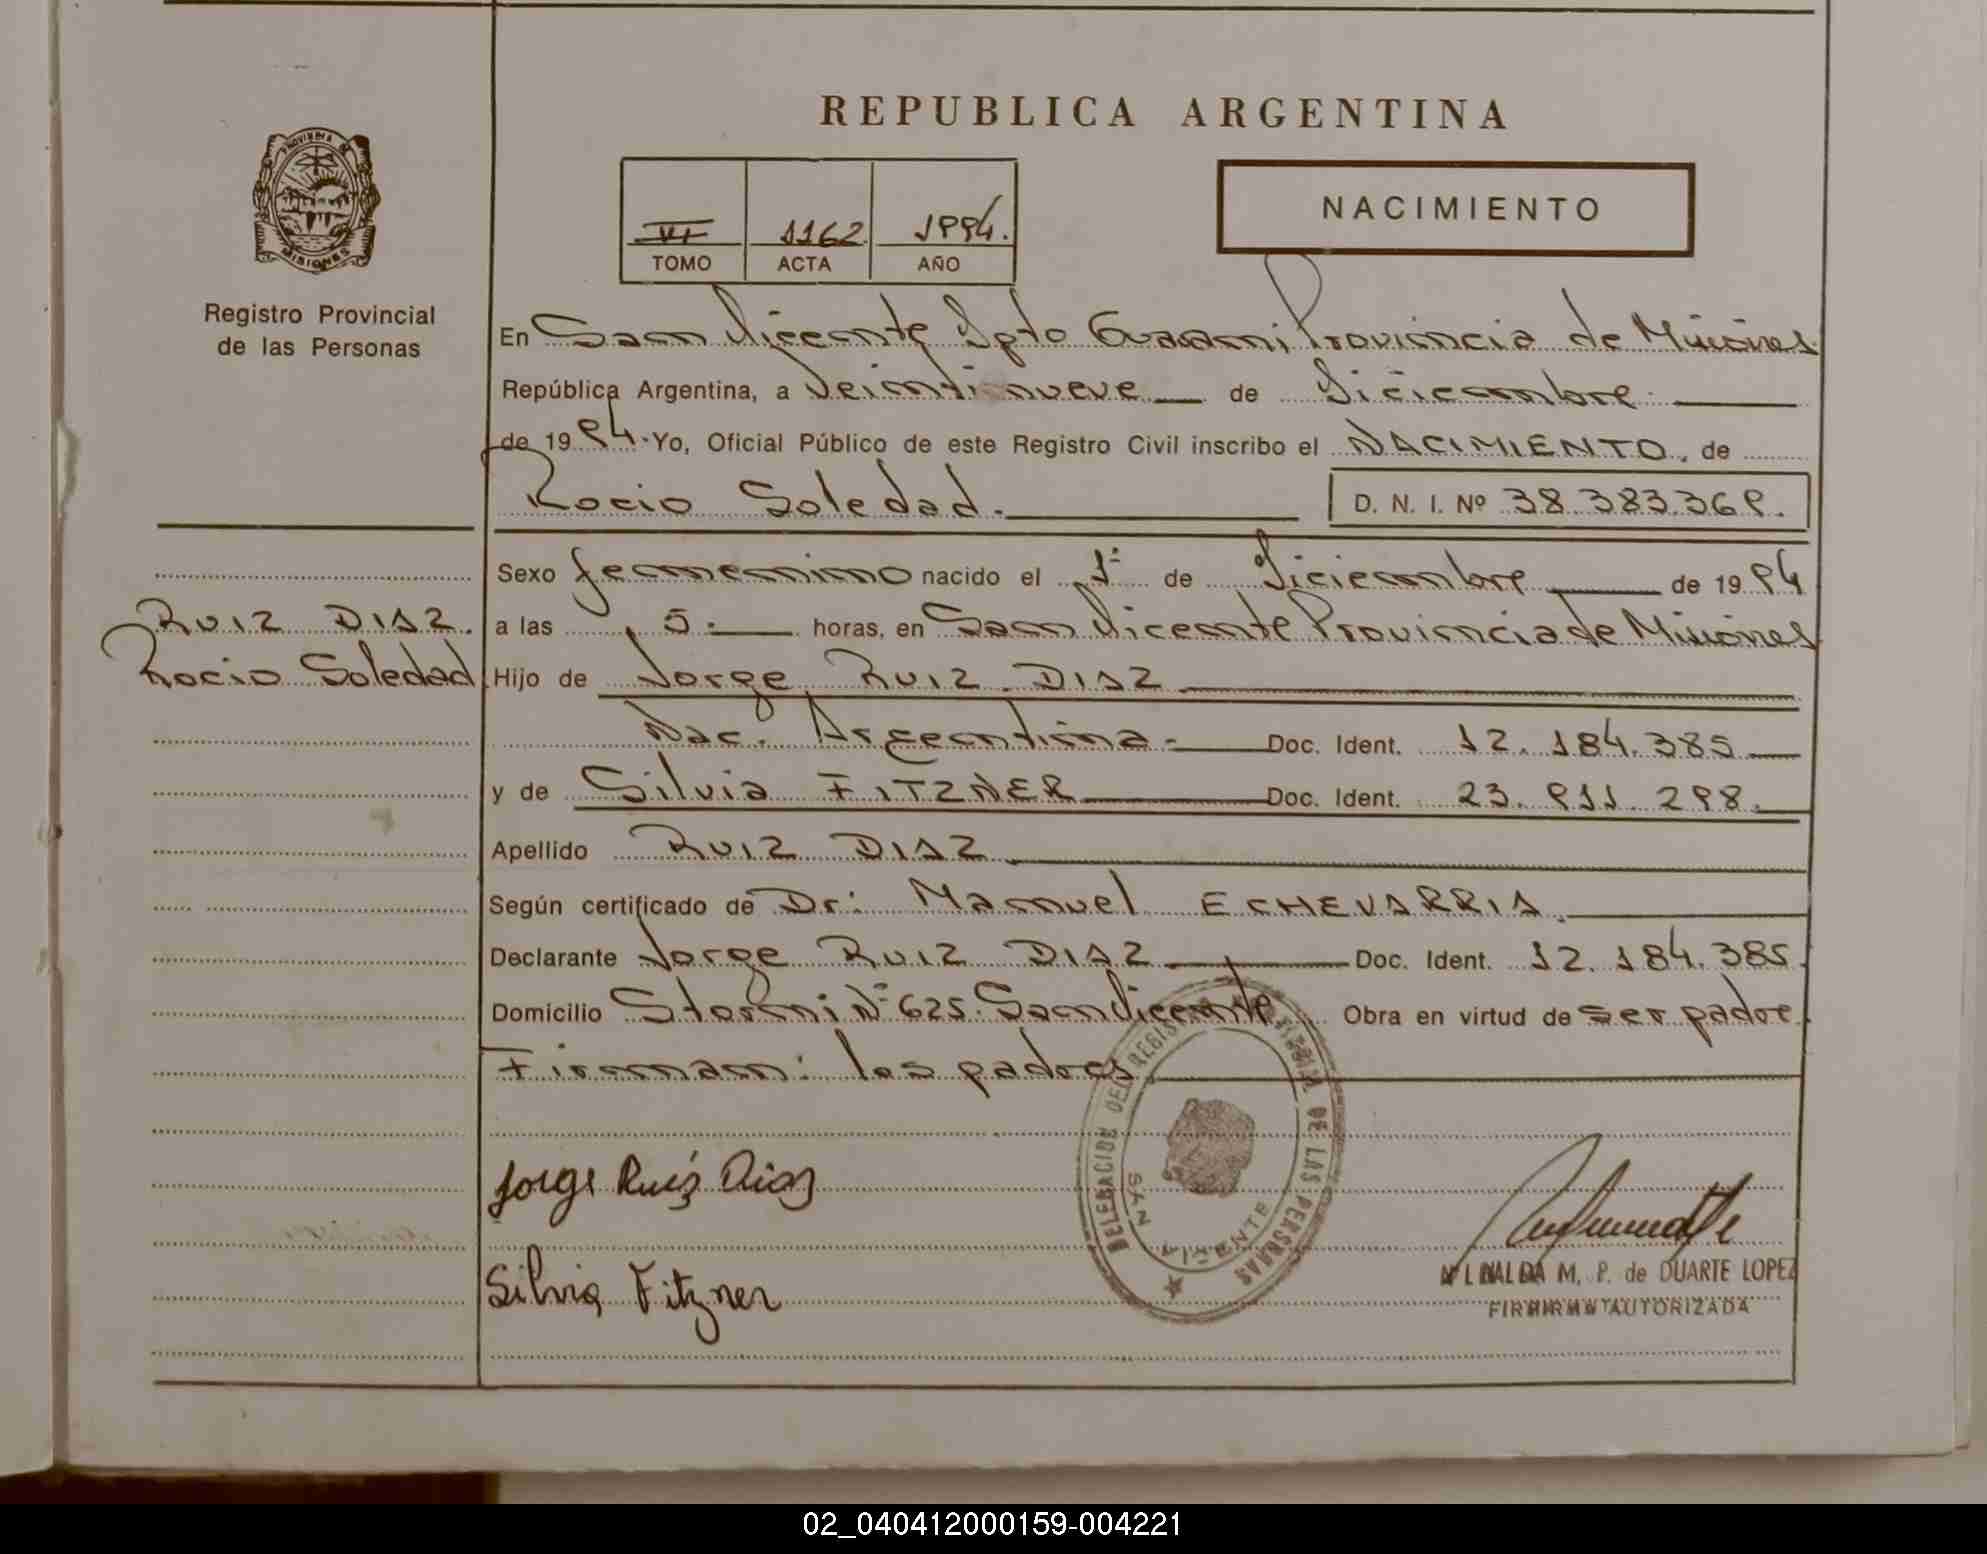 REPUBLICA ARGENTINA
PROVINCIA DE MISIONES
VI 1162 1994.
TOMO ACTA AÑO
NACIMIENTO
Registro Provincial
de las Personas
En San Vicente Dpto Guarani Provincia de Misiones
República Argentina, a Veintinueve de Diciembre
de 1994. Yo, Oficial Público de este Registro Civil inscribo el NACIMIENTO. de
Rocio Soledad. D. N. I. Nº 38.383.369.
Sexo femenino nacido el 1º de Diciembre de 1994
RUIZ DIAZ.
Rocio Soledad
a las 5. horas, en San Vicente Provincia de Misiones
Hijo de Jorge RUIZ DIAZ
Nac. Argentina. Doc. Ident. 12.184.385
y de Silvia FITZNER Doc. Ident. 23.911.298.
Apellido RUIZ DIAZ
Según certificado de Dr: Manuel ECHEVARRIA.
Declarante Jorge RUIZ DIAZ Doc. Ident. 12.184.385.
Domicilio Storni Nº 625. San Vicente Obra en virtud de ser padre
Firman: los padres
DELEGACION DEL REGISTRO PROVINCIAL DE LAS PERSONAS
SAN VICENTE
Jorge Ruiz Diaz
Silvia Fitzner
M. P. de DUARTE LOPEZ
FIRMA AUTORIZADA
02_040412000159-004221